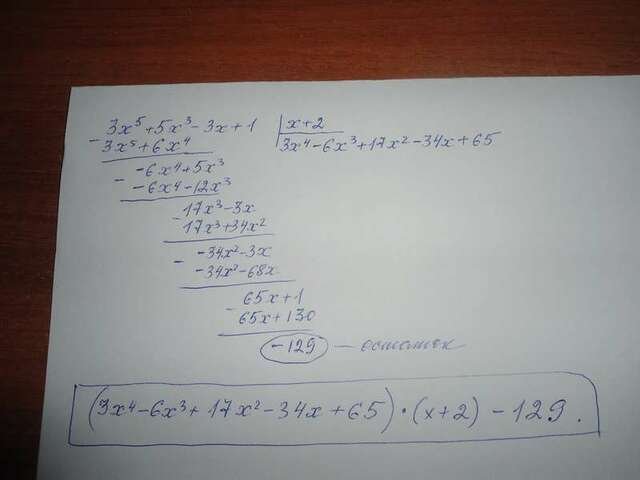 3x⁵+5x³-3x+1 | x+2
- 3x⁵+6x⁴ 3x⁴-6x³+17x²-34x+65
-6x⁴+5x³
- -6x⁴-12x³
17x³-3x
- 17x³+34x²
-34x²-3x
- -34x²-68x
65x+1
- 65x+130
-129 — остаток
(3x⁴-6x³+17x²-34x+65)·(x+2)-129.